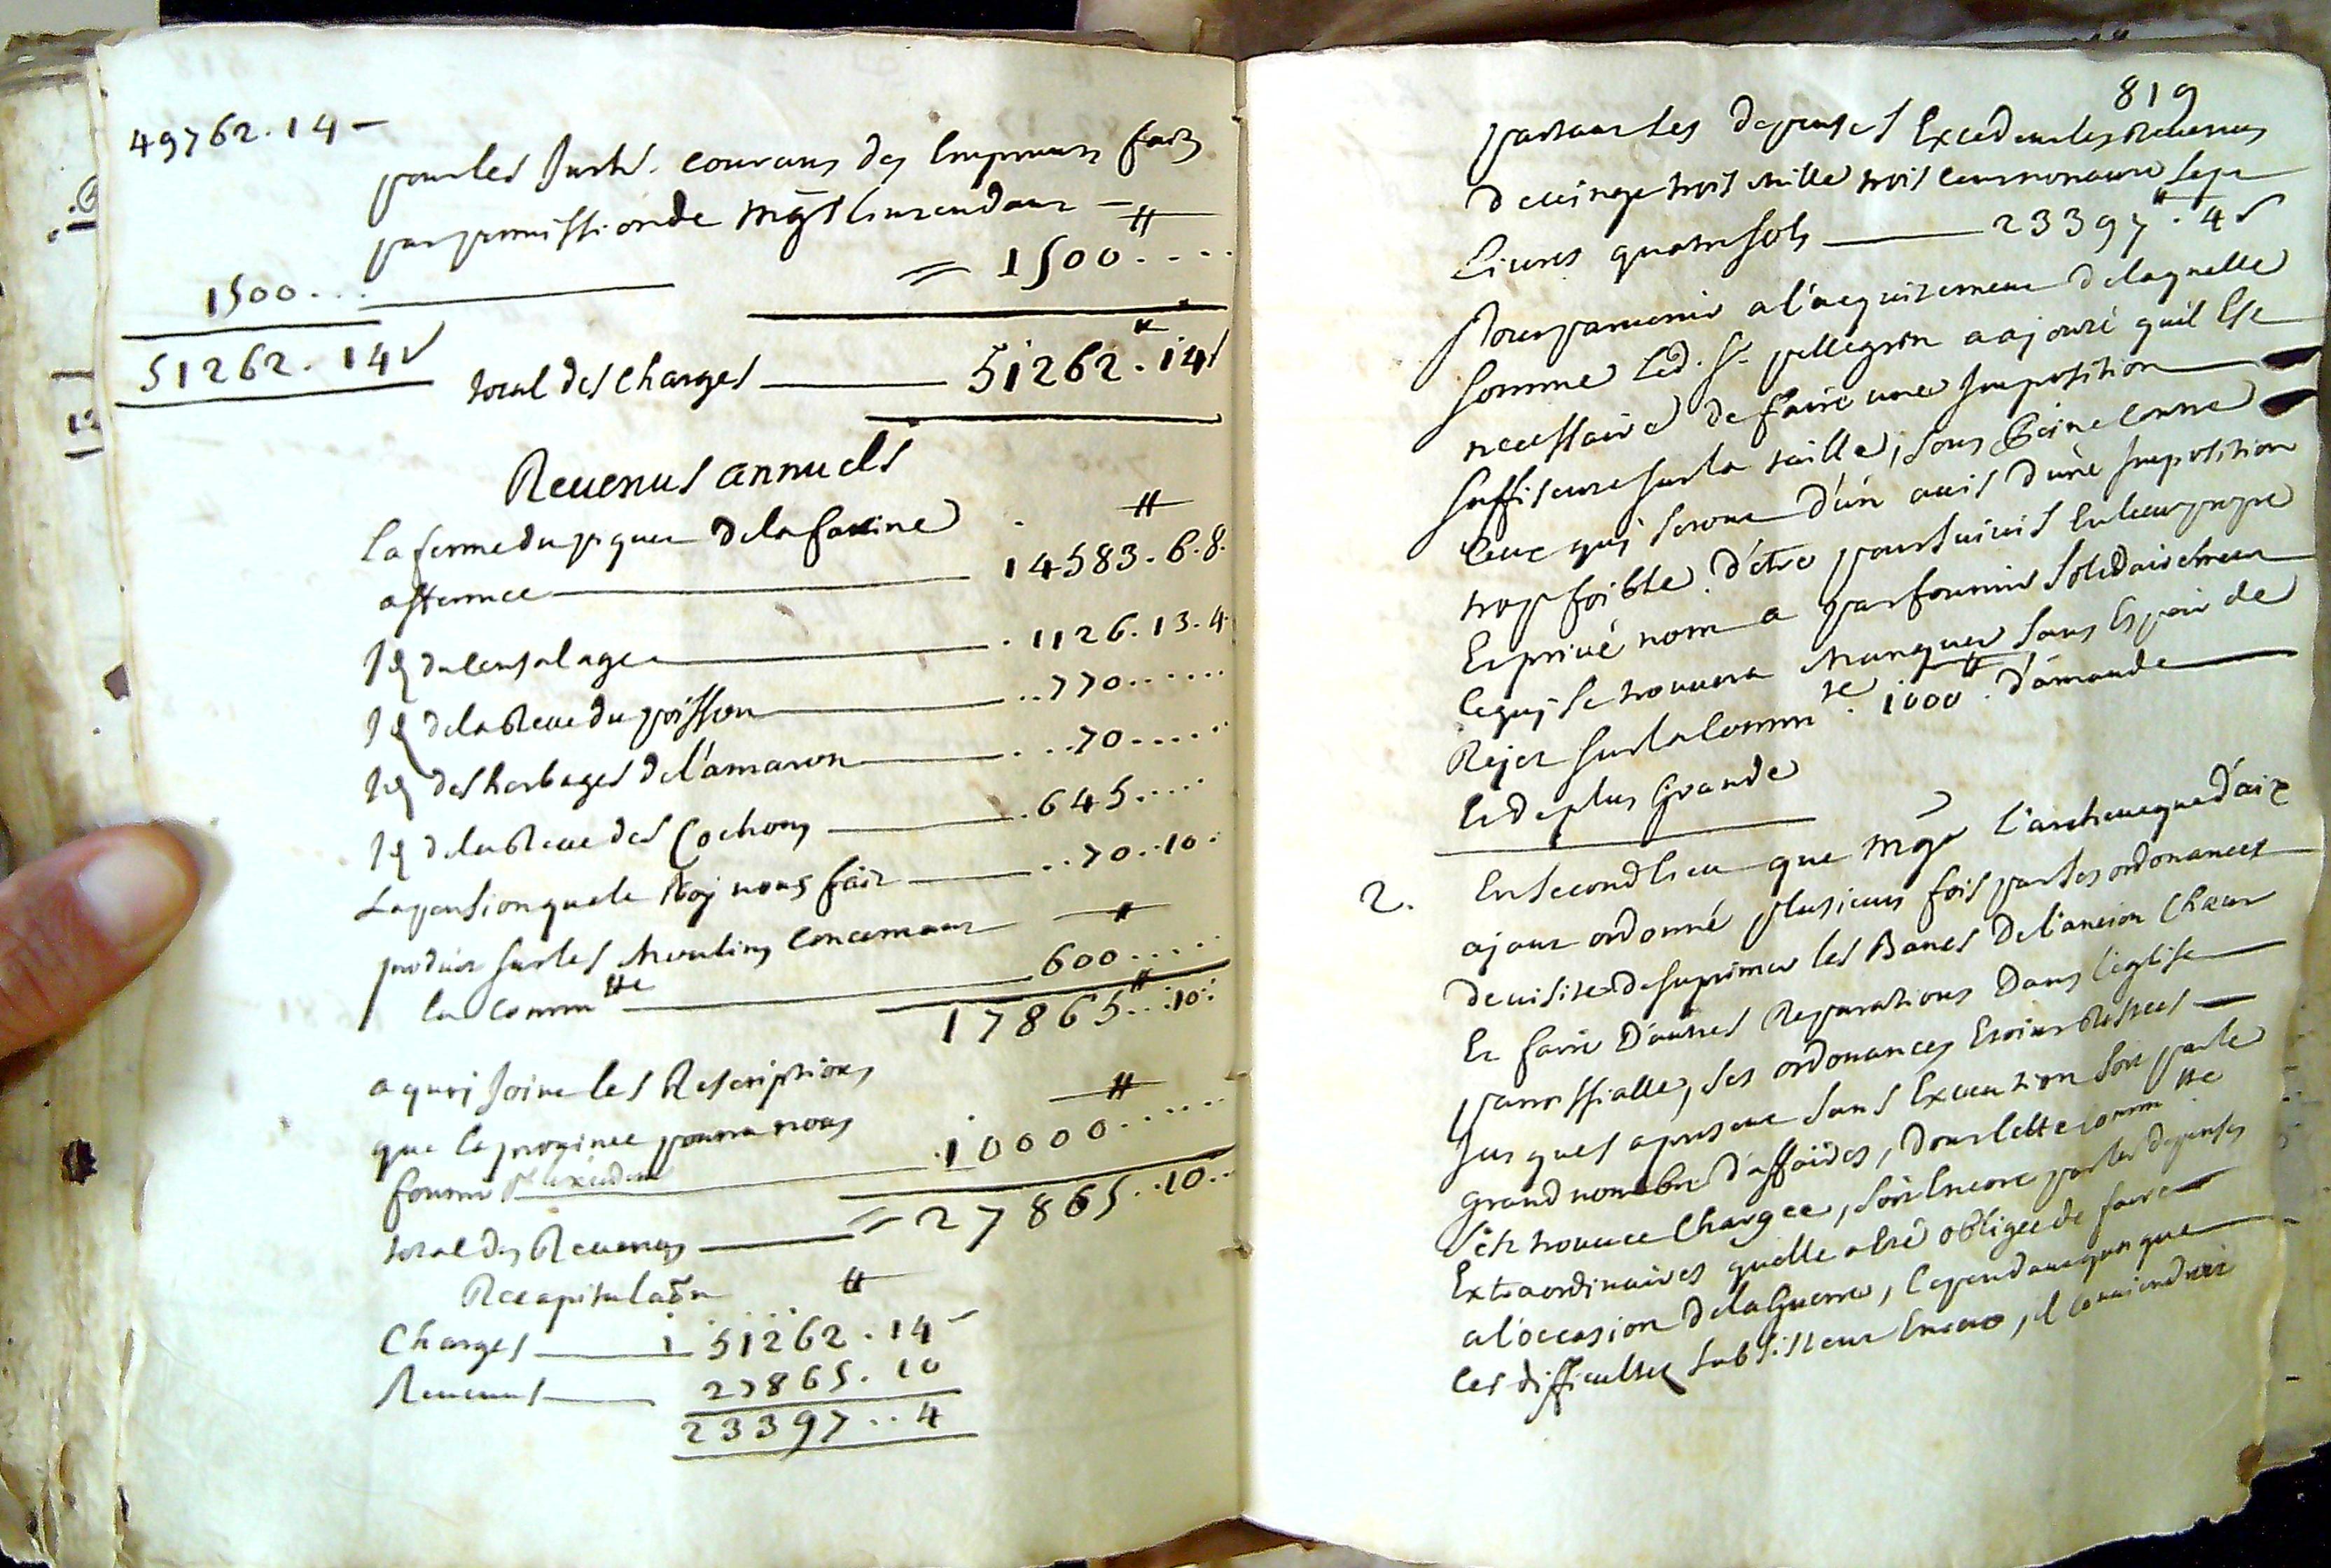 49762.14
pour les Jnts. courans des Emprunts faits
par permission de Mgr l'intendant
1500...
= 1500....
51262.14 s
total des charges 51262 ₶.14 s
Revenus annuels
₶
la ferme du piquet de la farine
affermee 14583.6.8.
Id du censalage .1126.13.4.
Id de la Reve du poisson ..770......
Id des herbages de l'amaron ...70.....
Id de la Reve des Cochons .645.....
La pension que le Roy nous fait ..70..10.
sur les Moulins concernant ₶
la Commte 600.....
17865 ₶..10.
a quoy joint les Rescriptions
que la province pourra nous ₶
fournir .10000......
total des Revenus = 27865..10..
Recapitulaõn ₶
Charges 51262.14
Revenus 27865.10
23397..4
819
partant les depenses Excedent les Revenus
de vingt trois mille trois cent nonante sept
Livres quatre sols 23397 ₶.4 s
Pour parvenir a l'acquitement de laquelle
somme led. Sr. pellegrin a ajouté qu'il Est
necessaire de faire une Jmposition
suffisente sur la taille, sous peine contre
ceux quj seront d'un avis d'une Jmposition
trop foible. d'être poursuivis En leur propre
Et privé nom a parfournir solidairement
ce quj se trouvera Manquer sans Espoir de
Rejet sur la Commté. 1000 ₶. d'amande
Et de plus Grande
2. En second lieu que Mgr L'archeveque d'aix
ajant ordonné plusieurs fois par ses ordonances
de visite de suprimer les Bancs de l'ancien Chœur
Et faire D'autres Reparations Dans l'eglise
parroissialle, ses ordonances Etoint Restées
Jusques apresent sans Execution soit par le
grand nombre d'affaires, dont cette Commte
s'est trouvee Chargee, soit Encore par les depenses
Extraordinaires quelle a êté obligee de faire
a l'occasion de la Guerre, Cependant quoy que
ces difficultez subsistent Encore, il conviendroit